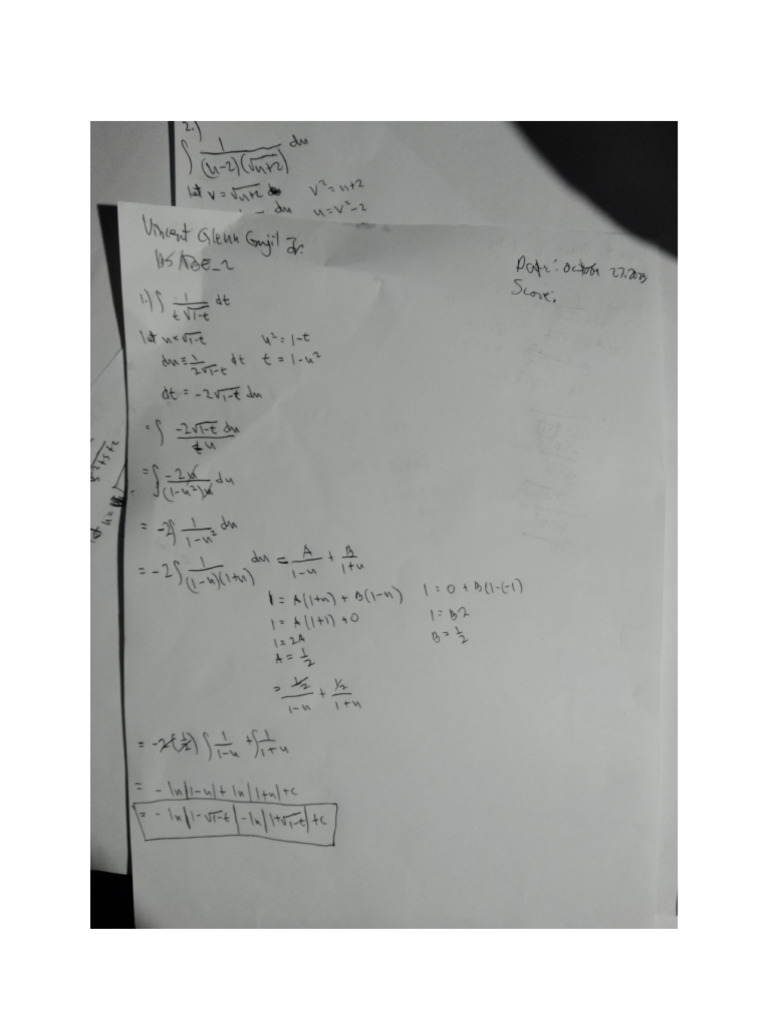 2.)
∫ 1/((u-2)(√u+2)) du
let v = √u+2 v² = u+2
du u = v²-2
Vincent Glenn Jr.
Date: October 27, 2023
Score:
1.) ∫ 1/(t√1-t) dt
let u = √1-t u² = 1-t
du = 1/(2√1-t) dt t = 1-u²
dt = -2√1-t du
= ∫ (-2√1-t du)/(t u)
= ∫ -2u/((1-u²)u) du
= -2∫ 1/(1-u²) du
= -2∫ 1/((1-u)(1+u)) du = A/(1-u) + B/(1+u)
1 = A(1+u) + B(1-u) 1 = 0 + B(1-(-1)
1 = A(1+1) + 0 1 = B2
1 = 2A B = 1/2
A = 1/2
= (1/2)/(1-u) + (1/2)/(1+u)
= -2(1/2) ∫ 1/(1-u) + ∫ 1/(1+u)
= - ln|1-u| + ln|1+u| + c
= - ln|1-√1-t| - ln|1+√1-t| + c
let u =